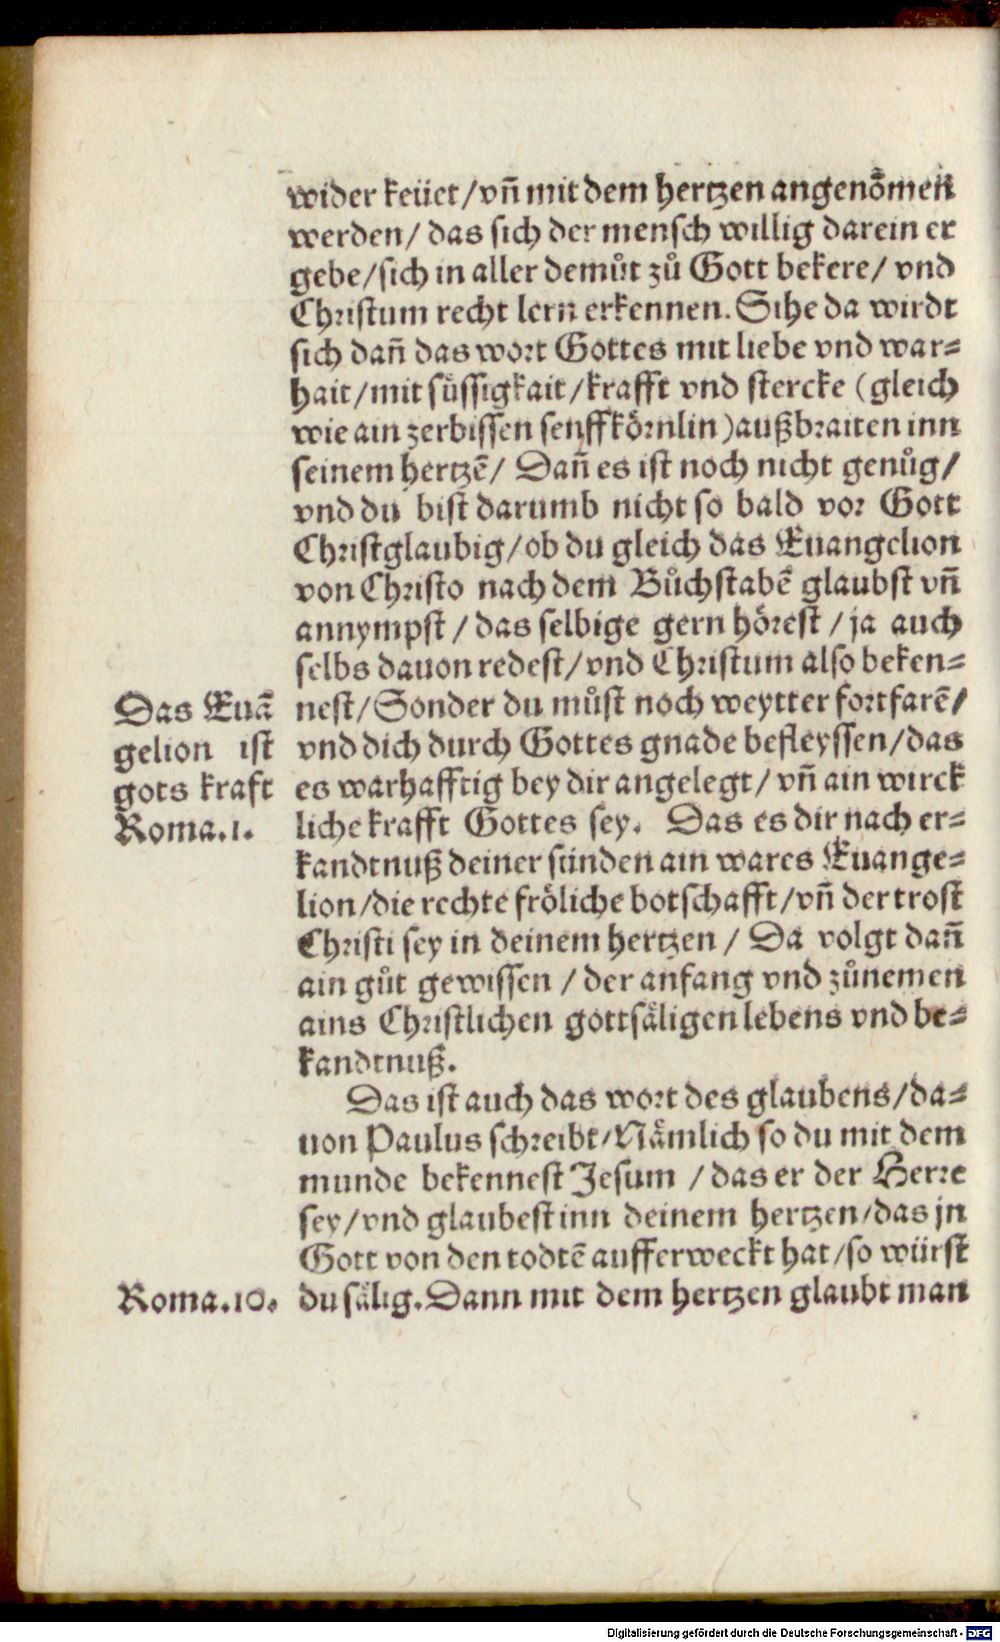 wider keüet/vñ mit dem hertzen angenõmen
werden/ das sich der mensch willig darein er
gebe/sich in aller demůt zů Gott bekere/ vnd
Christum recht lern erkennen. Sihe da wirdt
sich dañ das wort Gottes mit liebe vnd war=
hait/mit süssigkait/krafft vnd stercke (gleich
wie ain zerbissen senffkörnlin)außbraiten inn
seinem hertzẽ/ Dañ es ist noch nicht genůg/
vnd du bist darumb nicht so bald vor Gott
Christglaubig/ob du gleich das Euangelion
von Christo nach dem Bůchstabẽ glaubst vñ
annympst/das selbige gern hörest/ja auch
selbs dauon redest/vnd Christum also beken=
Das Euã nest/Sonder du můst noch weytter fortfarẽ/
gelion ist vnd dich durch Gottes gnade befleyssen/das
gots kraft es warhafftig bey dir angelegt/vñ ain wirck
Roma.1. liche krafft Gottes sey. Das es dir nach er=
kandtnuß deiner sünden ain wares Euange=
lion/die rechte fröliche botschafft/vñ der trost
Christi sey in deinem hertzen/ Da volgt dañ
ain gůt gewissen/der anfang vnd zůnemen
ains Christlichen gottsäligen lebens vnd be=
kandtnuß.
Das ist auch das wort des glaubens/da=
uon Paulus schreibt/Nämlich so du mit dem
munde bekennest Jesum/das er der Herre
sey/vnd glaubest inn deinem hertzen/das jn
Gott von den todtẽ aufferweckt hat/so würst
Roma.10. du sälig. Dann mit dem hertzen glaubt man
Digitalisierung gefördert durch die Deutsche Forschungsgemeinschaft - DFG